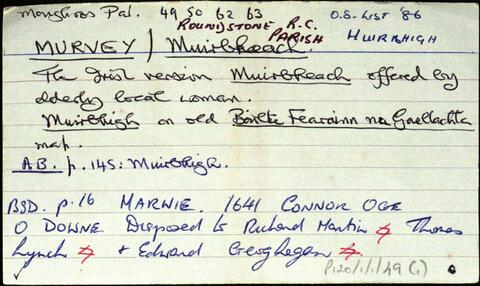 Moyruss Pal. 49 50 62 63 O.S. LIST '86
ROUNDSTONE R.C. PARISH
MURVEY / Muirbheach. MUIRBHIGH
The Irish version Muirbheach offered by
elderly local woman.
Muirbhigh on old Bailte Fearainn na Gaeltachta
map.
A.B. p. 145: Muirbhigh.
BSD. p. 16 MARWIE. 1641 CONNOR OGE
O DOWNE Disposed to Richard Martin Thomas
Lynch + Edward Geoghegan
P120/1/1/49 (1)